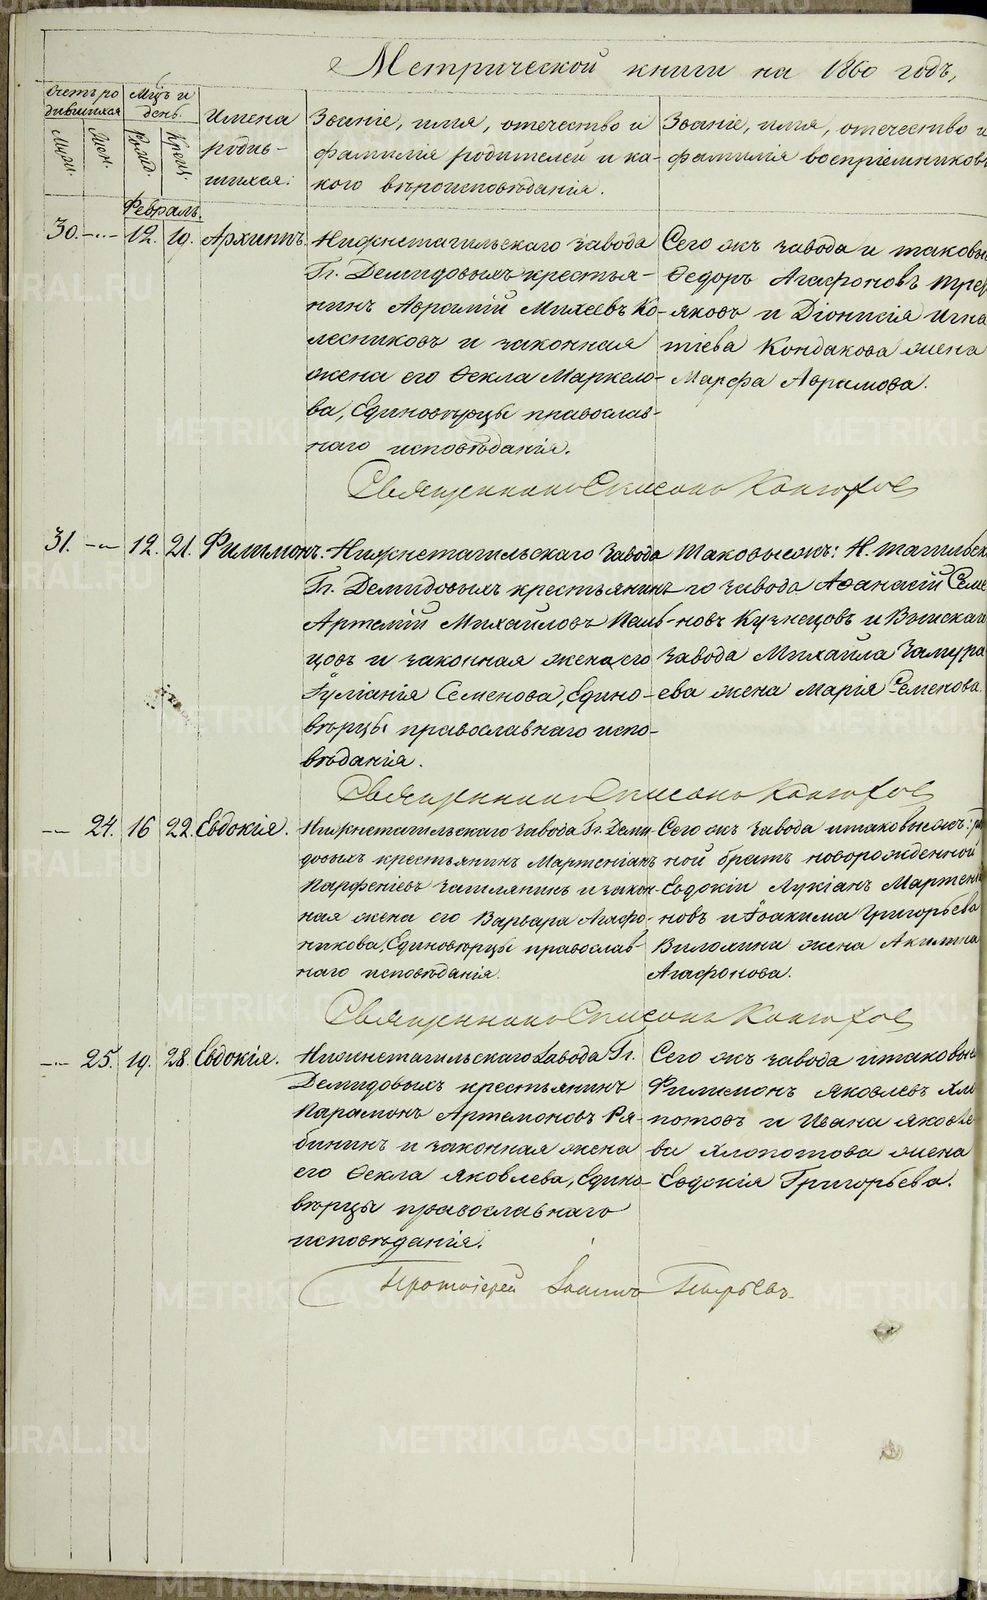 Метрической книги на 1860 годъ,
Счетъ ро
дившихся
Мцъ и
день.
Имена
родив-
шихся.
Званіе, имя, отечество и
фамилія родителей и ка-
кого вѣроисповѣданія.
Званіе, имя, отечество и
фамилія воспріемниковъ
Муж.
Жен.
Рожд.
Крещ.
Февраль.
30. -..- 12. 19. Архиппъ.
Нижнетагильскаго завода
Гг. Демидовыхъ крестья-
нинъ Аврамій Михеевъ Ко-
лесниковъ и законная
жена его Ѳекла Маркело-
ва, Единовѣрцы православ-
наго исповѣданія.
Сего жъ завода и таковы
Ѳедоръ Агафоновъ Трет
яковъ и Діонисія Игна
тіева Кондакова жена
Марфа Авримова.
Священникъ Симеонъ Конюхов
31. -„- 12. 21. Филимонъ.
Нижнетагильскаго завода
Гг. Демидовыхъ крестьянинъ
Артемій Михайловъ Паль-
цовъ и законная жена его
Іуліанія Семенова, Едино-
вѣрцы православнаго испо-
вѣданія.
Таковыежъ: Н. тагильск
го завода Аѳанасій Семе
новъ Кузнецовъ и Выискаго
завода Михаила Замура
ева жена Марія Семенова.
Священникъ Симеонъ Конюхов
-„- 24. 16 22. Евдокія.
Нижнетагильскаго завода Гг. Деми-
довыхъ крестьянинъ Мартеніанъ
Парфеніевъ и закон-
ная жена его Варвара Агафо-
никова, Единовѣрцы православ-
наго исповѣданія.
Сего жъ завода итаковыежъ: род
ной братъ новорожденной
Евдокіи Лукіанъ Мартені
новъ и Іоакима Григорьева
жена Акилина
Агафонова.
Священникъ Симеонъ Конюхов
-„- 25. 19. 28. Евдокія.
Нижнетагильскаго завода Гг.
Демидовыхъ крестьянинъ
Парамонъ Артемоновъ Ря-
бининъ и законная жена
его Ѳекла Яковлева, Едино-
вѣрцы православнаго
исповѣданія.
Сего жъ завода итаковые
Филимонъ Яковлевъ Хло
потовъ и Ивана Яковле
ва Хлопотова жена
Евдокія Григорьева.
Протоіерей Іоаннъ
METRIKI.GASO-URAL.RU